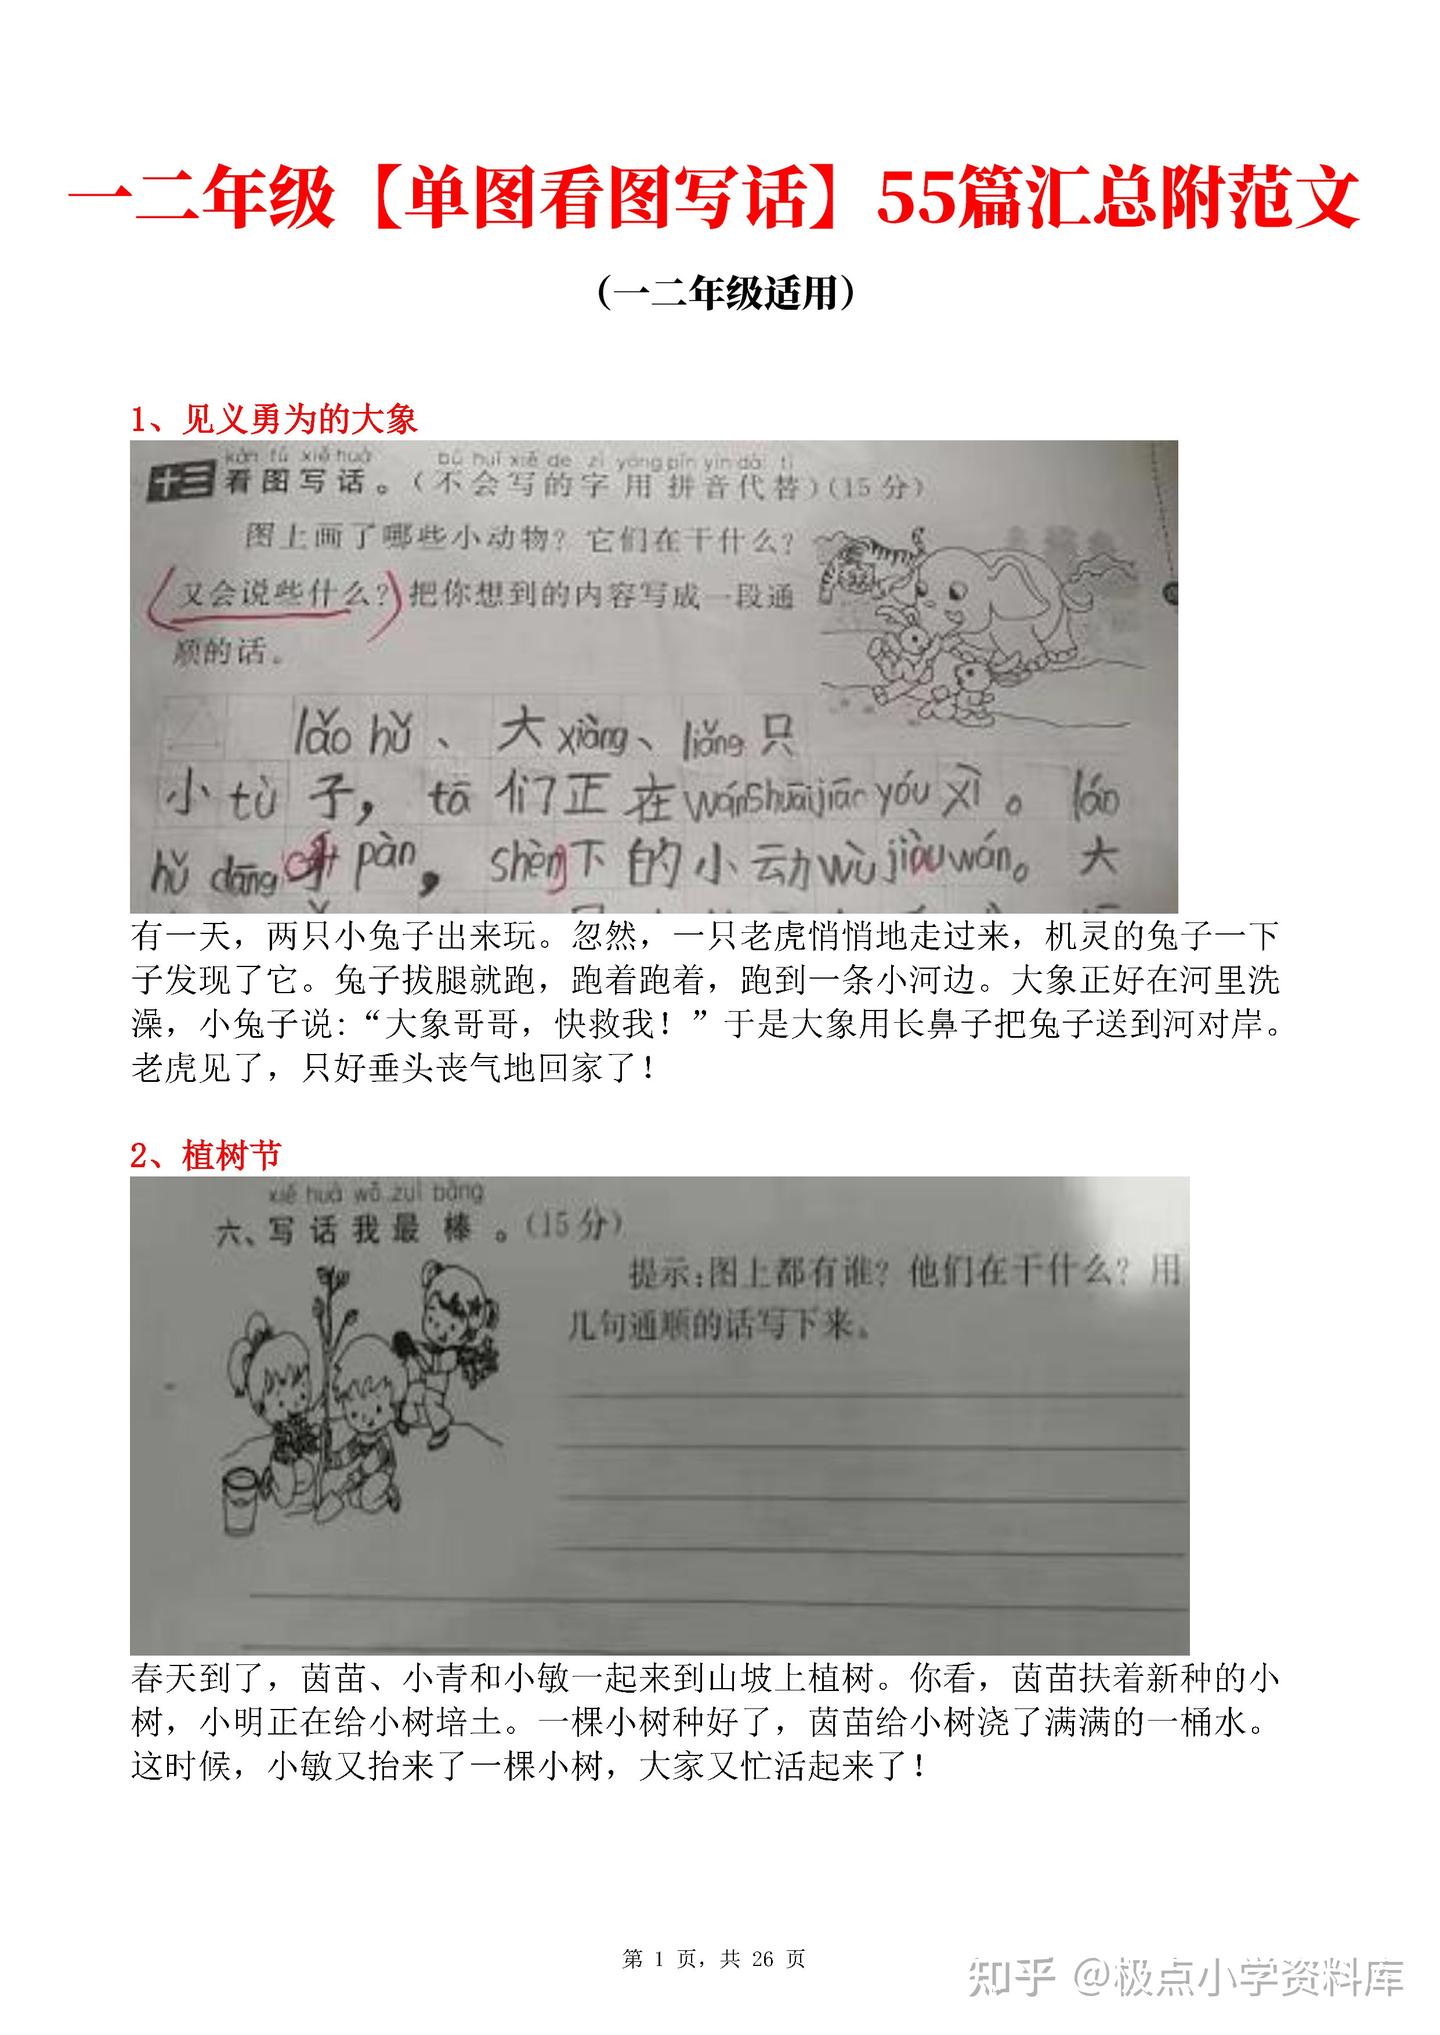 一二年级【单图看图写话】55篇汇总附范文
（一二年级适用）
1、见义勇为的大象
kàn tú xiě huà bú huì xiě de zì yòng pīn yīn dài tì
十三 看图写话。（不会写的字用拼音代替）（15分）
图上画了哪些小动物？它们在干什么？
又会说些什么？把你想到的内容写成一段通
顺的话。
lǎo hǔ、大xiàng、liǎng只
小tù子，tā们正在wánshuǎijiāo yóu xì。lǎo
hǔ dāng pàn，shèng下的小动wù jiòu wán。大
有一天，两只小兔子出来玩。忽然，一只老虎悄悄地走过来，机灵的兔子一下
子发现了它。兔子拔腿就跑，跑着跑着，跑到一条小河边。大象正好在河里洗
澡，小兔子说：“大象哥哥，快救我！”于是大象用长鼻子把兔子送到河对岸。
老虎见了，只好垂头丧气地回家了！
2、植树节
xiě huà wǒ zuì bàng
六、写话我最棒。（15分）
提示：图上都有谁？他们在干什么？用
几句通顺的话写下来。
春天到了，茵苗、小青和小敏一起来到山坡上植树。你看，茵苗扶着新种的小
树，小明正在给小树培土。一棵小树种好了，茵苗给小树浇了满满的一桶水。
这时候，小敏又抬来了一棵小树，大家又忙活起来了！
第 1 页，共 26 页
知乎 @极点小学资料库